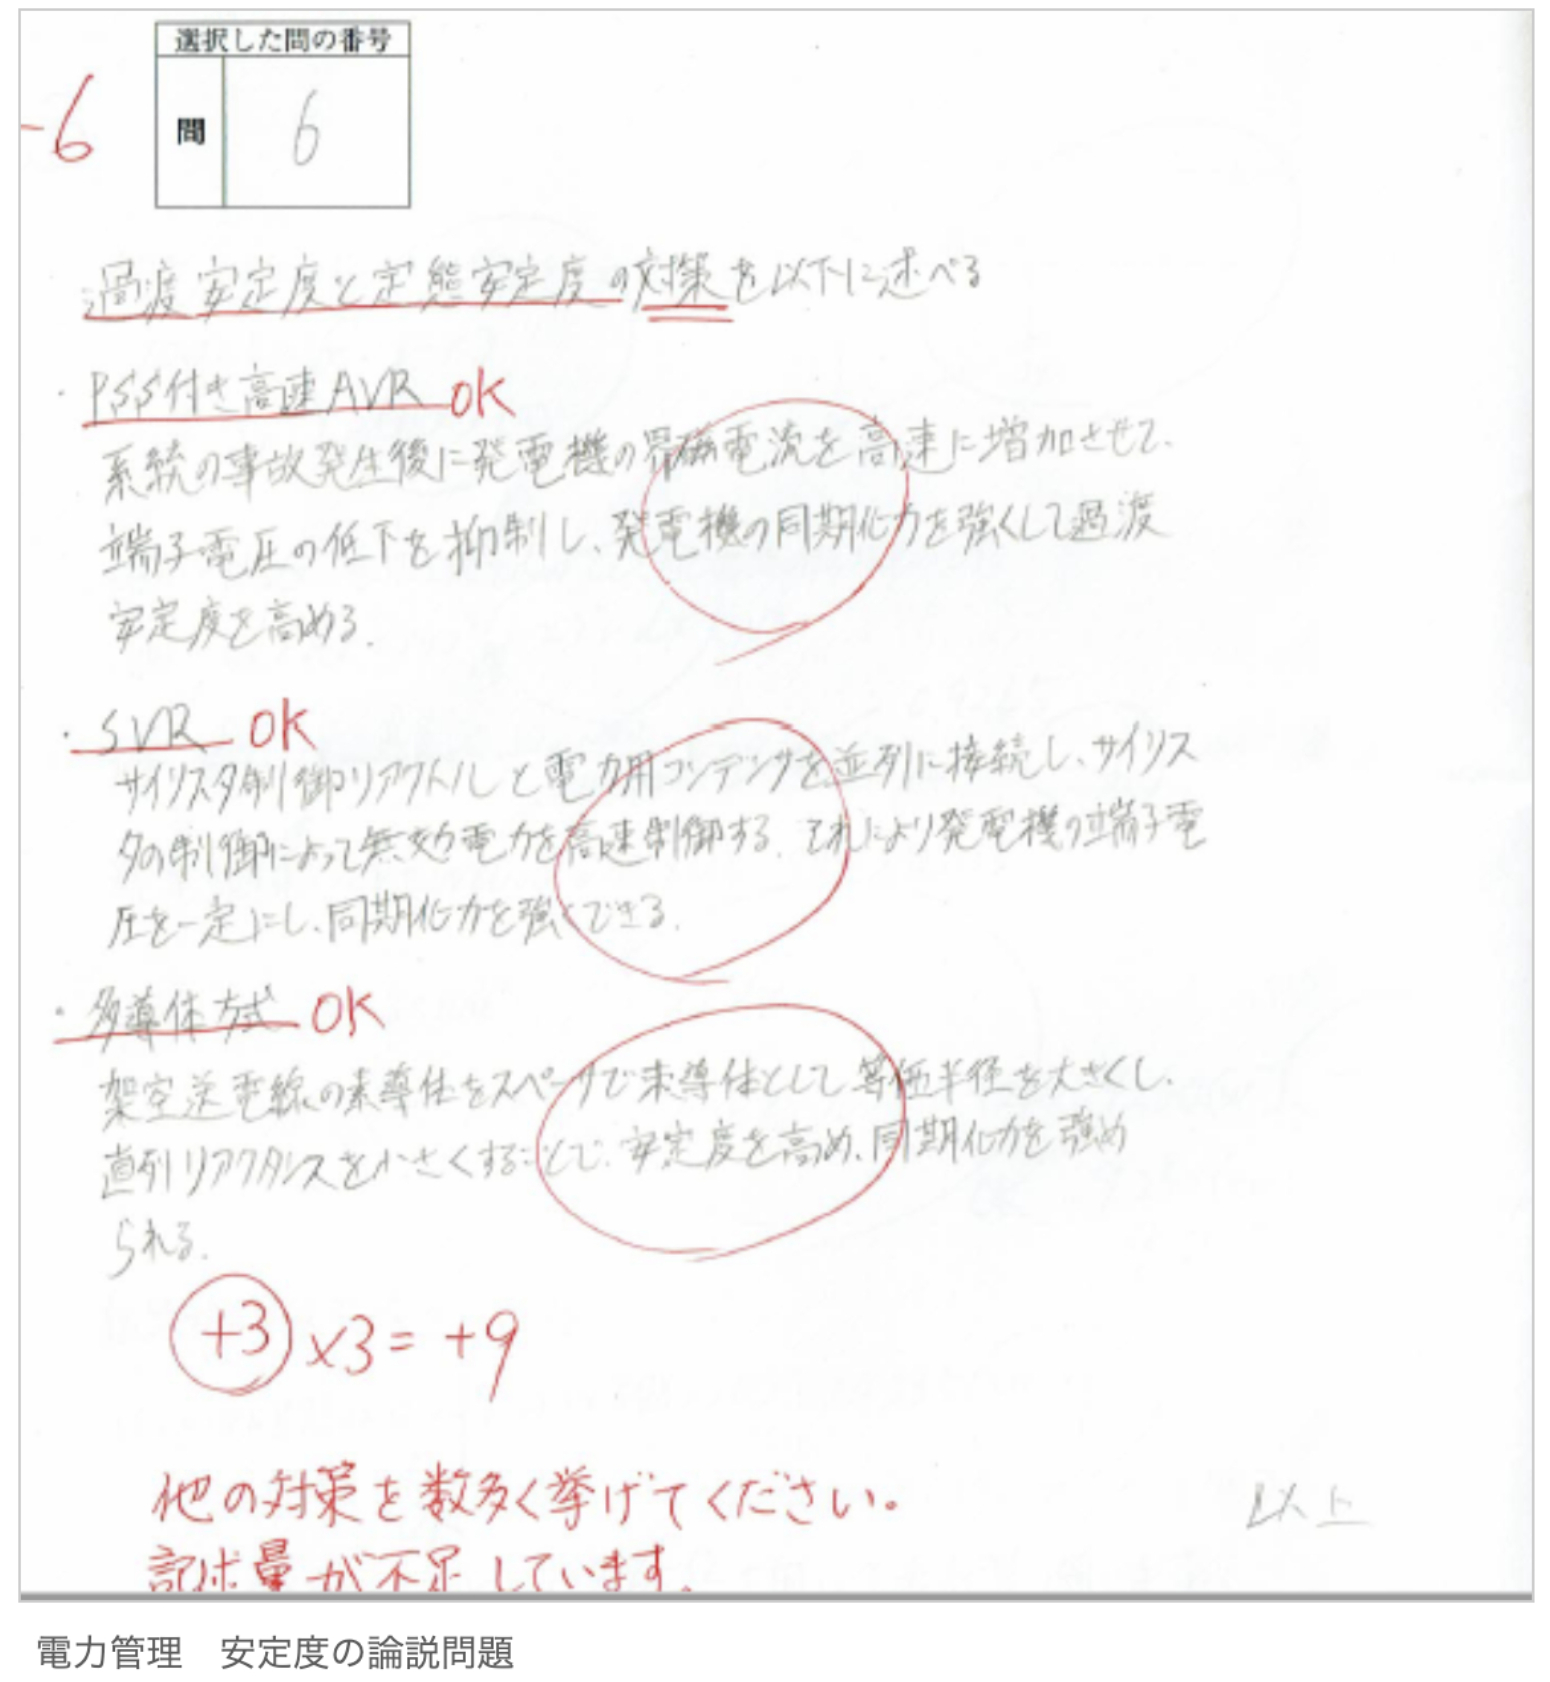 選択した問の番号
-6
問
6
過渡安定度と定態安定度の対策を以下に述べる
・PSS付き高速AVR OK
系統の事故発生後に発電機の界磁電流を高速に増加させて、
端子電圧の低下を抑制し、発電機の同期化力を強くして過渡
安定度を高める.
・SVR OK
サイリスタ制御リアクトルと電力用コンデンサを並列に接続し、サイリス
タの制御によって無効電力を高速制御する. それにより発電機の端子電
圧を一定にし、同期化力を強くできる.
・多導体方式 OK
架空送電線の素導体をスペーサで束導体として等価半径を大きくし、
直列リアクタンスを小さくすることで、安定度を高め、同期化力を強め
られる.
+3 ×3 = +9
他の対策を数多く挙げてください。
以上
記述量が不足しています.
電力管理 安定度の論説問題